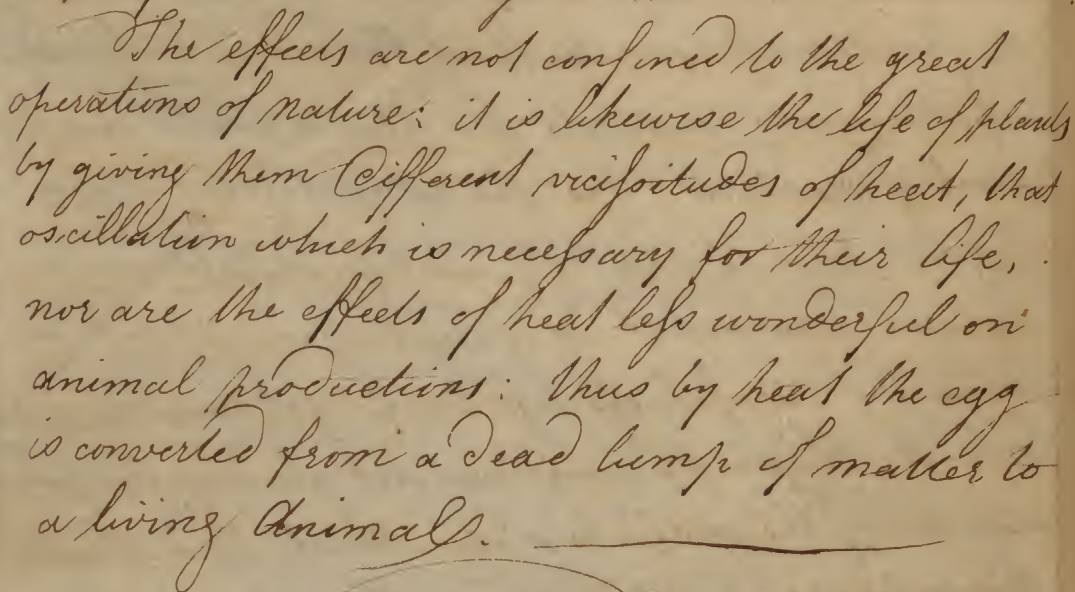 The effects are not confined to the great
operations of nature: it is likewise the life of plants
by giving them different vicissitudes of heat, that
oscillation which is necessary for their life,
nor are the effects of heat less wonderful on
animal productions: thus by heat the egg
is converted from a dead lump of matter to
a living Animal.